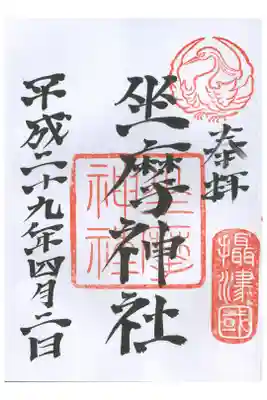 奉拝
攝津國
坐摩神社
坐摩神社
平成二十九年四月二日